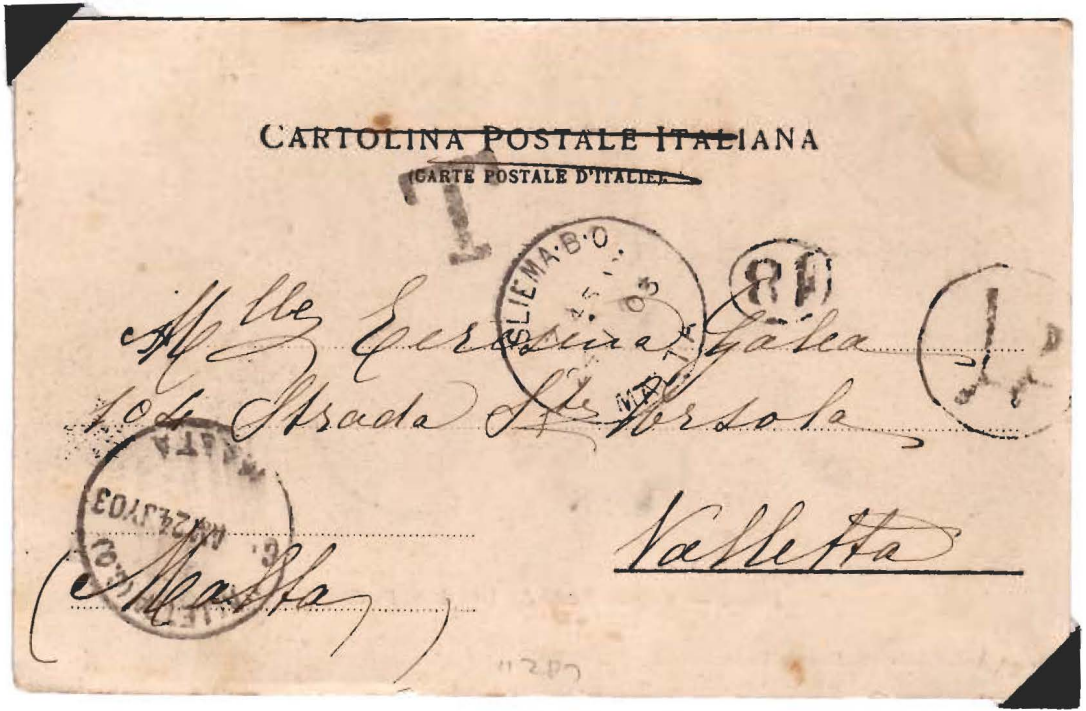 CARTOLINA POSTALE ITALIANA
(CARTE POSTALE D'ITALIE)
T
SLIEMA·B·O·
03
MALTA
18
Mlle Eerosina Galea
104 Strada Ste Orsola
Valletta
(Malta)
MALTA
24JY03
VALLETTA (G.O)